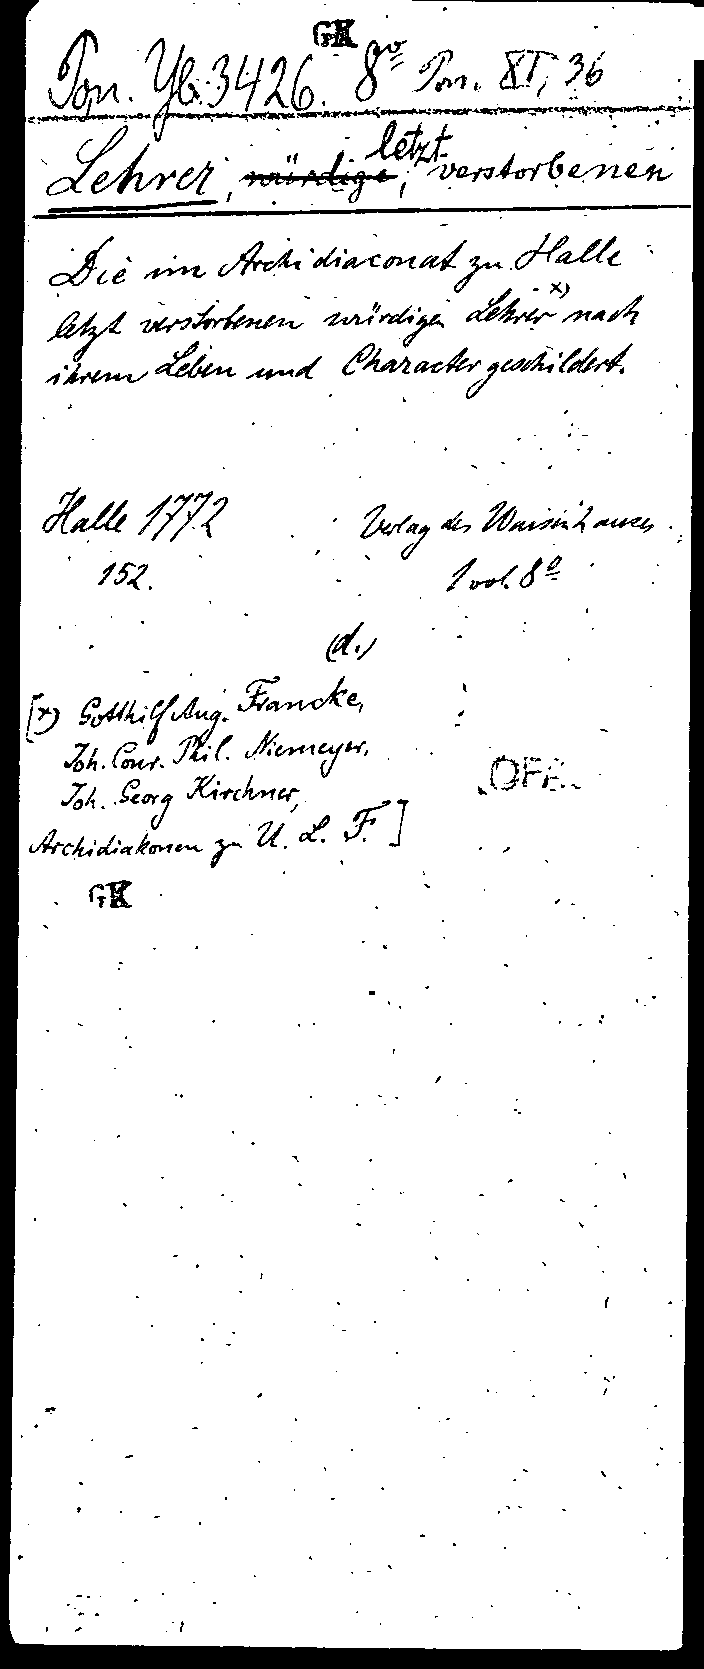 GK
Pon. Yb. 3426. 8vo Pon. XI, 36
Lehrer, würdige, letzt verstorbenen
Die im Archidiaconat zu Halle
letzt verstorbenen würdigen Lehrer x) nach
ihrem Leben und Character geschildert.
Halle 1772 Verlag des Waisenhauses
152. 1 vol. 8o
(d.)
[x) Gotthilf Aug. Francke,
Joh. Conr. Phil. Niemeyer,
Joh. Georg Kirchner,
Archidiakonen zu U. L. F.]
OFF.
GK